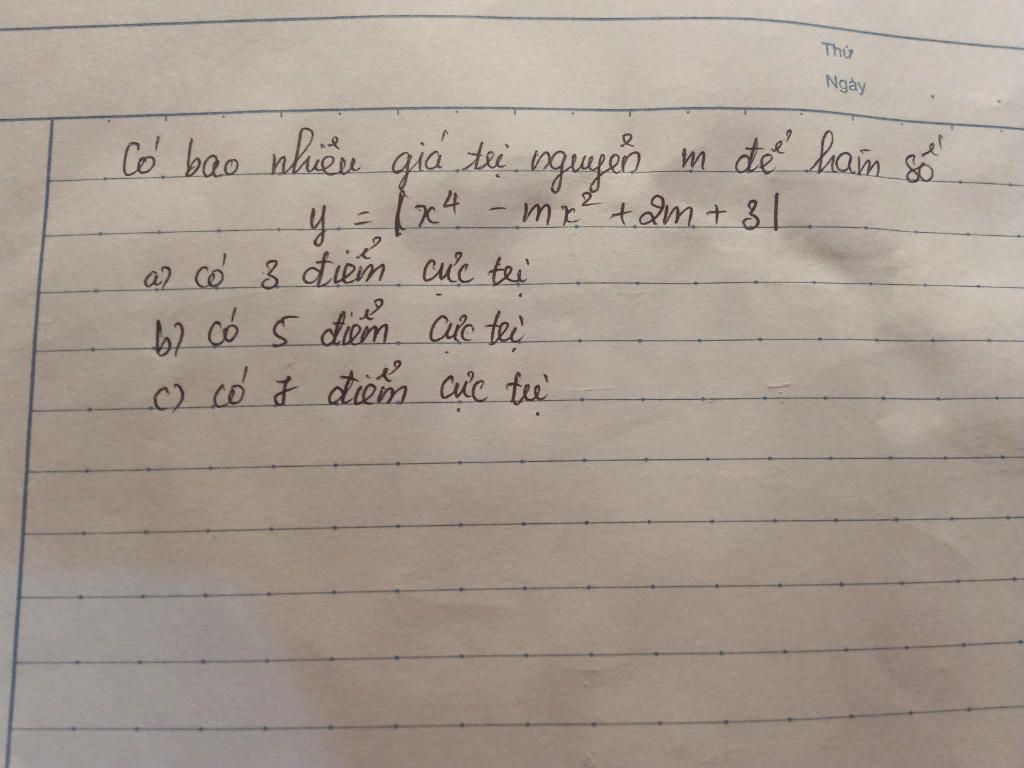 Thứ
Ngày
Có bao nhiêu giá trị nguyên m để hàm số
y = |x⁴ - mx² + 2m + 3|
a) có 3 điểm cực trị
b) có 5 điểm cực trị
c) có 7 điểm cực trị